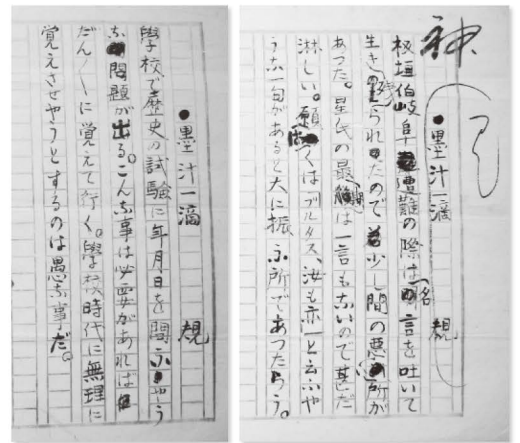 神
●墨汁一滴 規
板垣伯岐阜遭難の際は名言を吐いて
生き残られたので少し間の悪い所が
あつた。星氏の最期は一言もないので甚だ
淋しい。願くはブルタス、汝も亦」と云ふや
うな一句があると大に振ふ所であつたらう。
●墨汁一滴 規
學校で歴史の試驗に年月日を問ふやう
な問題が出る。こんな事は必要があれば
だん／＼に覚えて行く。學校時代に無理に
覚えさせやうとするのは愚な事だ。